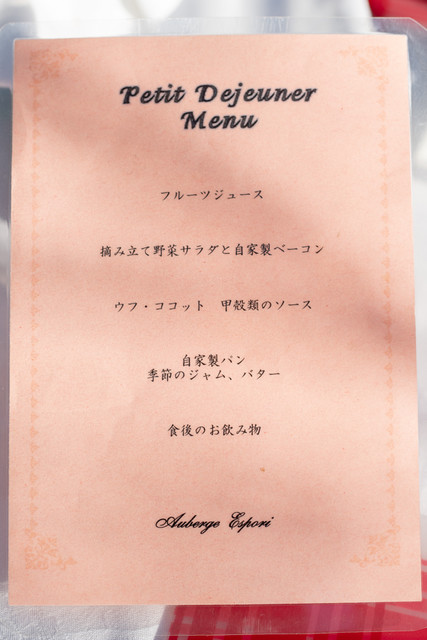 Petit Dejeuner
Menu
フルーツジュース
摘み立て野菜サラダと自家製ベーコン
ウフ・ココット　甲殻類のソース
自家製パン
季節のジャム、バター
食後のお飲み物
Auberge Espori